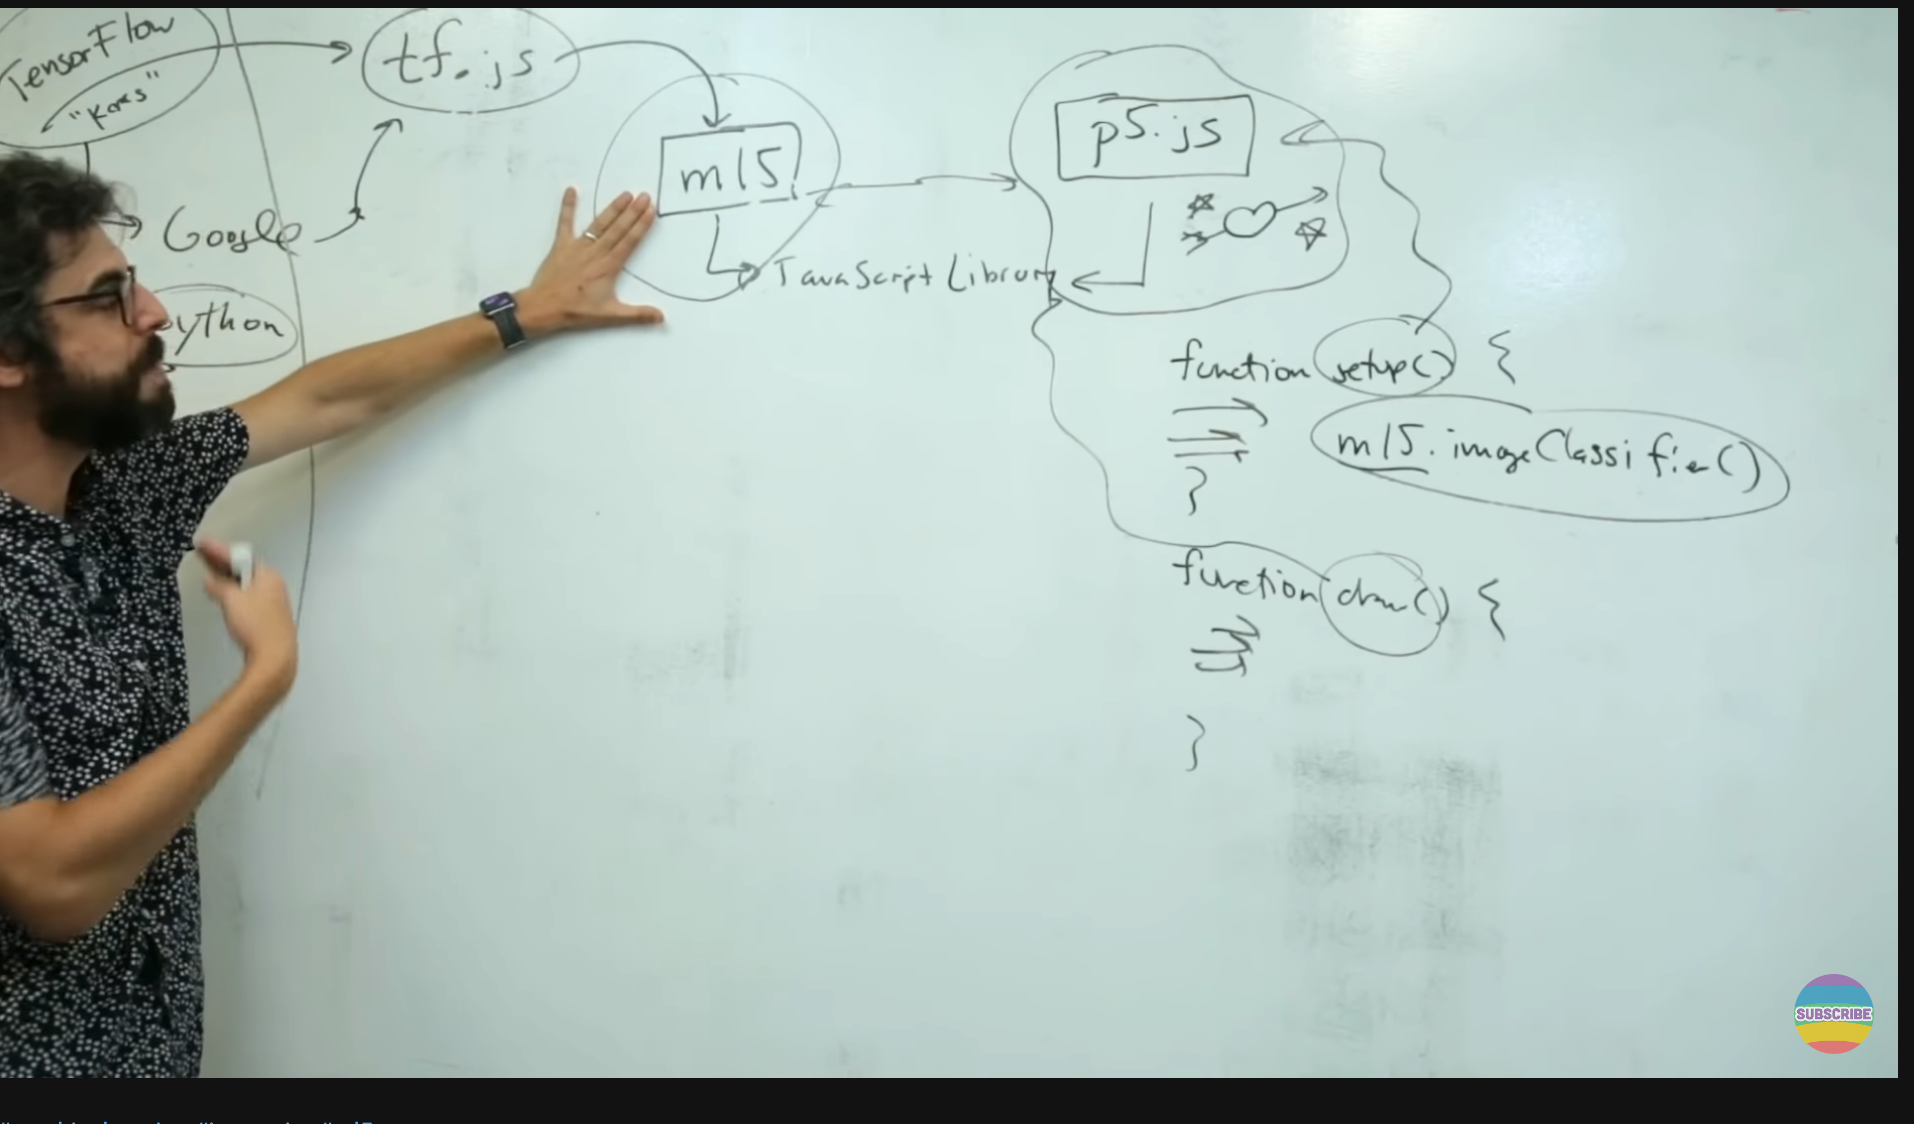 TensorFlow
"Keras"
tf.js
ml5
p5.js
Google
JavaScript Library
python
function setup() {
ml5.imageClassifier()
}
function draw() {
}
SUBSCRIBE